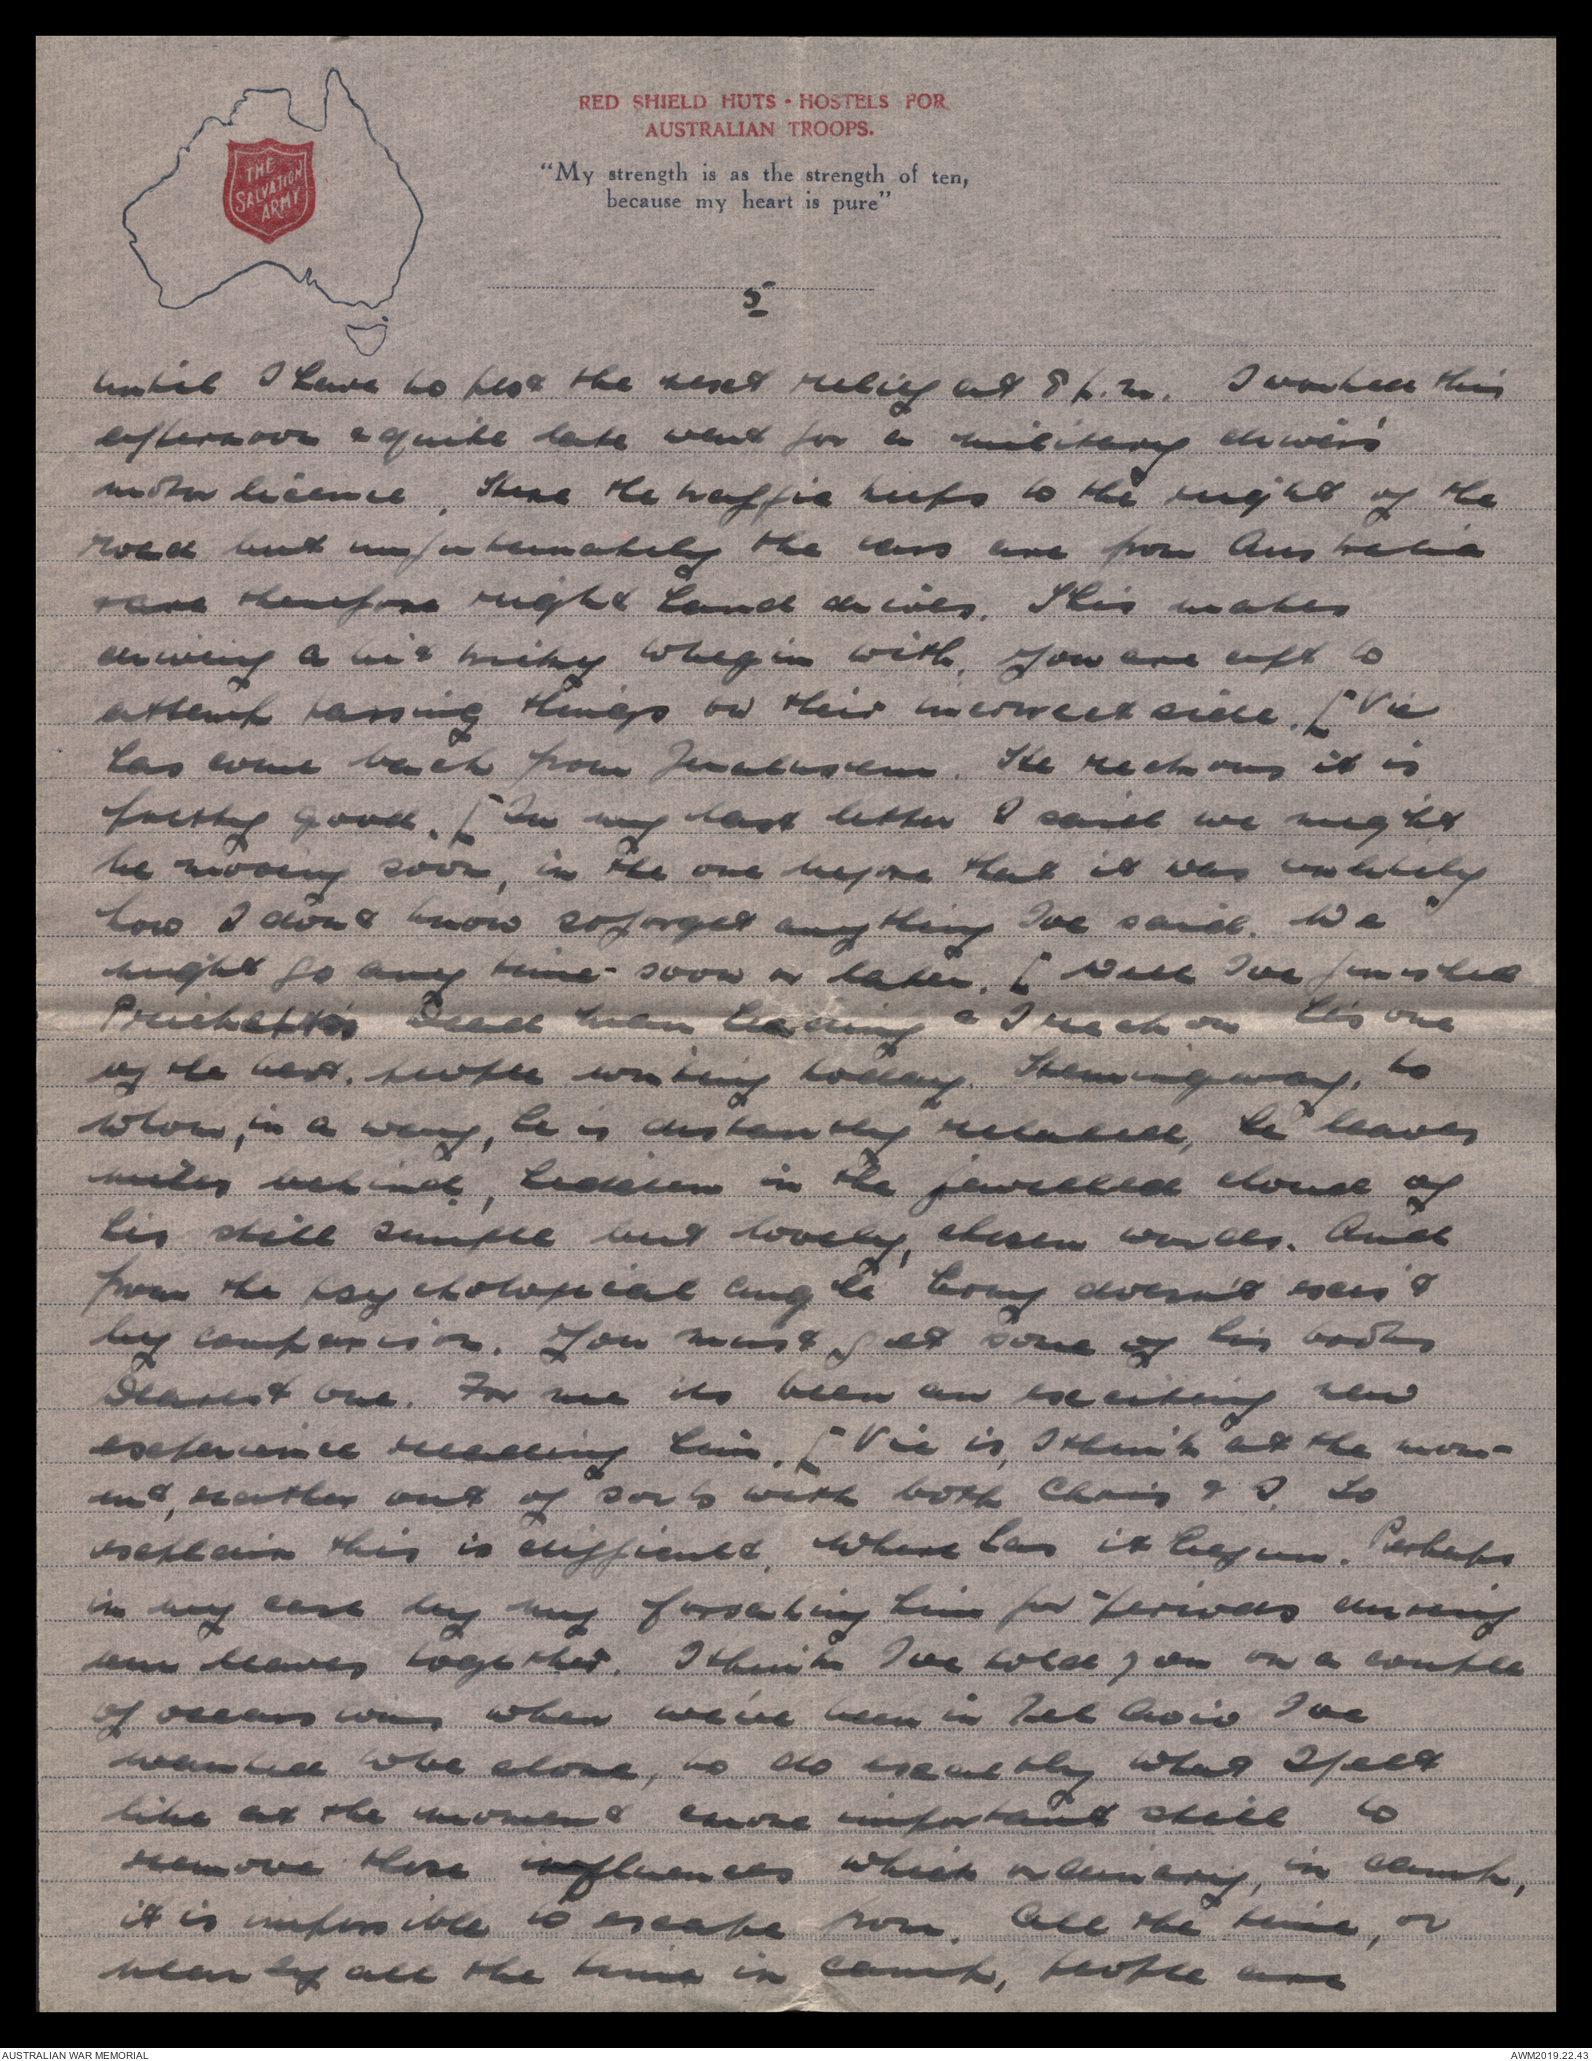 RED SHIELD HUTS - HOSTELS FOR
AUSTRALIAN TROOPS.
"My strength is as the strength of ten,
because my heart is pure"
THE
SALVATION
ARMY
5
until I have to post the next relief at 8 p.m. I worked this
afternoon & quite late went for a military driver's
motor licence. Here the traffic keeps to the right of the
road but unfortunately the cars are from Australia
& are therefore right hand drives. This makes
driving a bit tricky to begin with. You are apt to
attempt passing things on their incorrect side. [Vic
has come back from Jerulusem. He reckons it is
pretty good. [In my last letter I said we might
be moving soon, in the one before that it was unlikely
now I don't know so forget anything I've said. We
might go any time - soon or later. [Well I've finished
Prichett's Dead Man Leading & I reckon he's one
of the best people writing today. Hemingway, to
whom, in a way, he is distantly related, he leaves
miles behind, hidden in the jewelled cloud of
his still simple but lovely, chosen words. And
from the psychological angle Hemy doesn't exist
by comparison. You must get some of his books
Dearest one. For me its been an exciting new
experience reading him. [Vic is, I think at the mom-
ent, rather out of sorts with both Chris & I. To
explain this is difficult. Where has it begun. Perhaps
in my case by my forsaking him for periods during
our leaves together. I think I've told you on a couple
of occassions when we've been in Tel Aviv I've
wanted to be alone, to do exactly what I felt
like at the moment & more important still to
remove those influences which ordinary, in camp,
it is impossible to escape from. All the time, or
nearly all the time in camp, people are
AUSTRALIAN WAR MEMORIAL
AWM2019.22.43